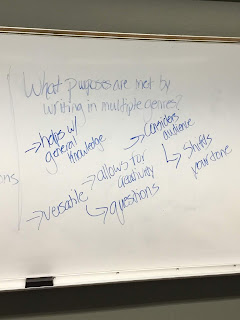 What purposes are met by
writing in multiple genres?
→ helps w/
general
knowledge
→ Considers
audience
↳ Shifts
your tone
ons
→ versatile
→ allows for
creativity
↳ questions